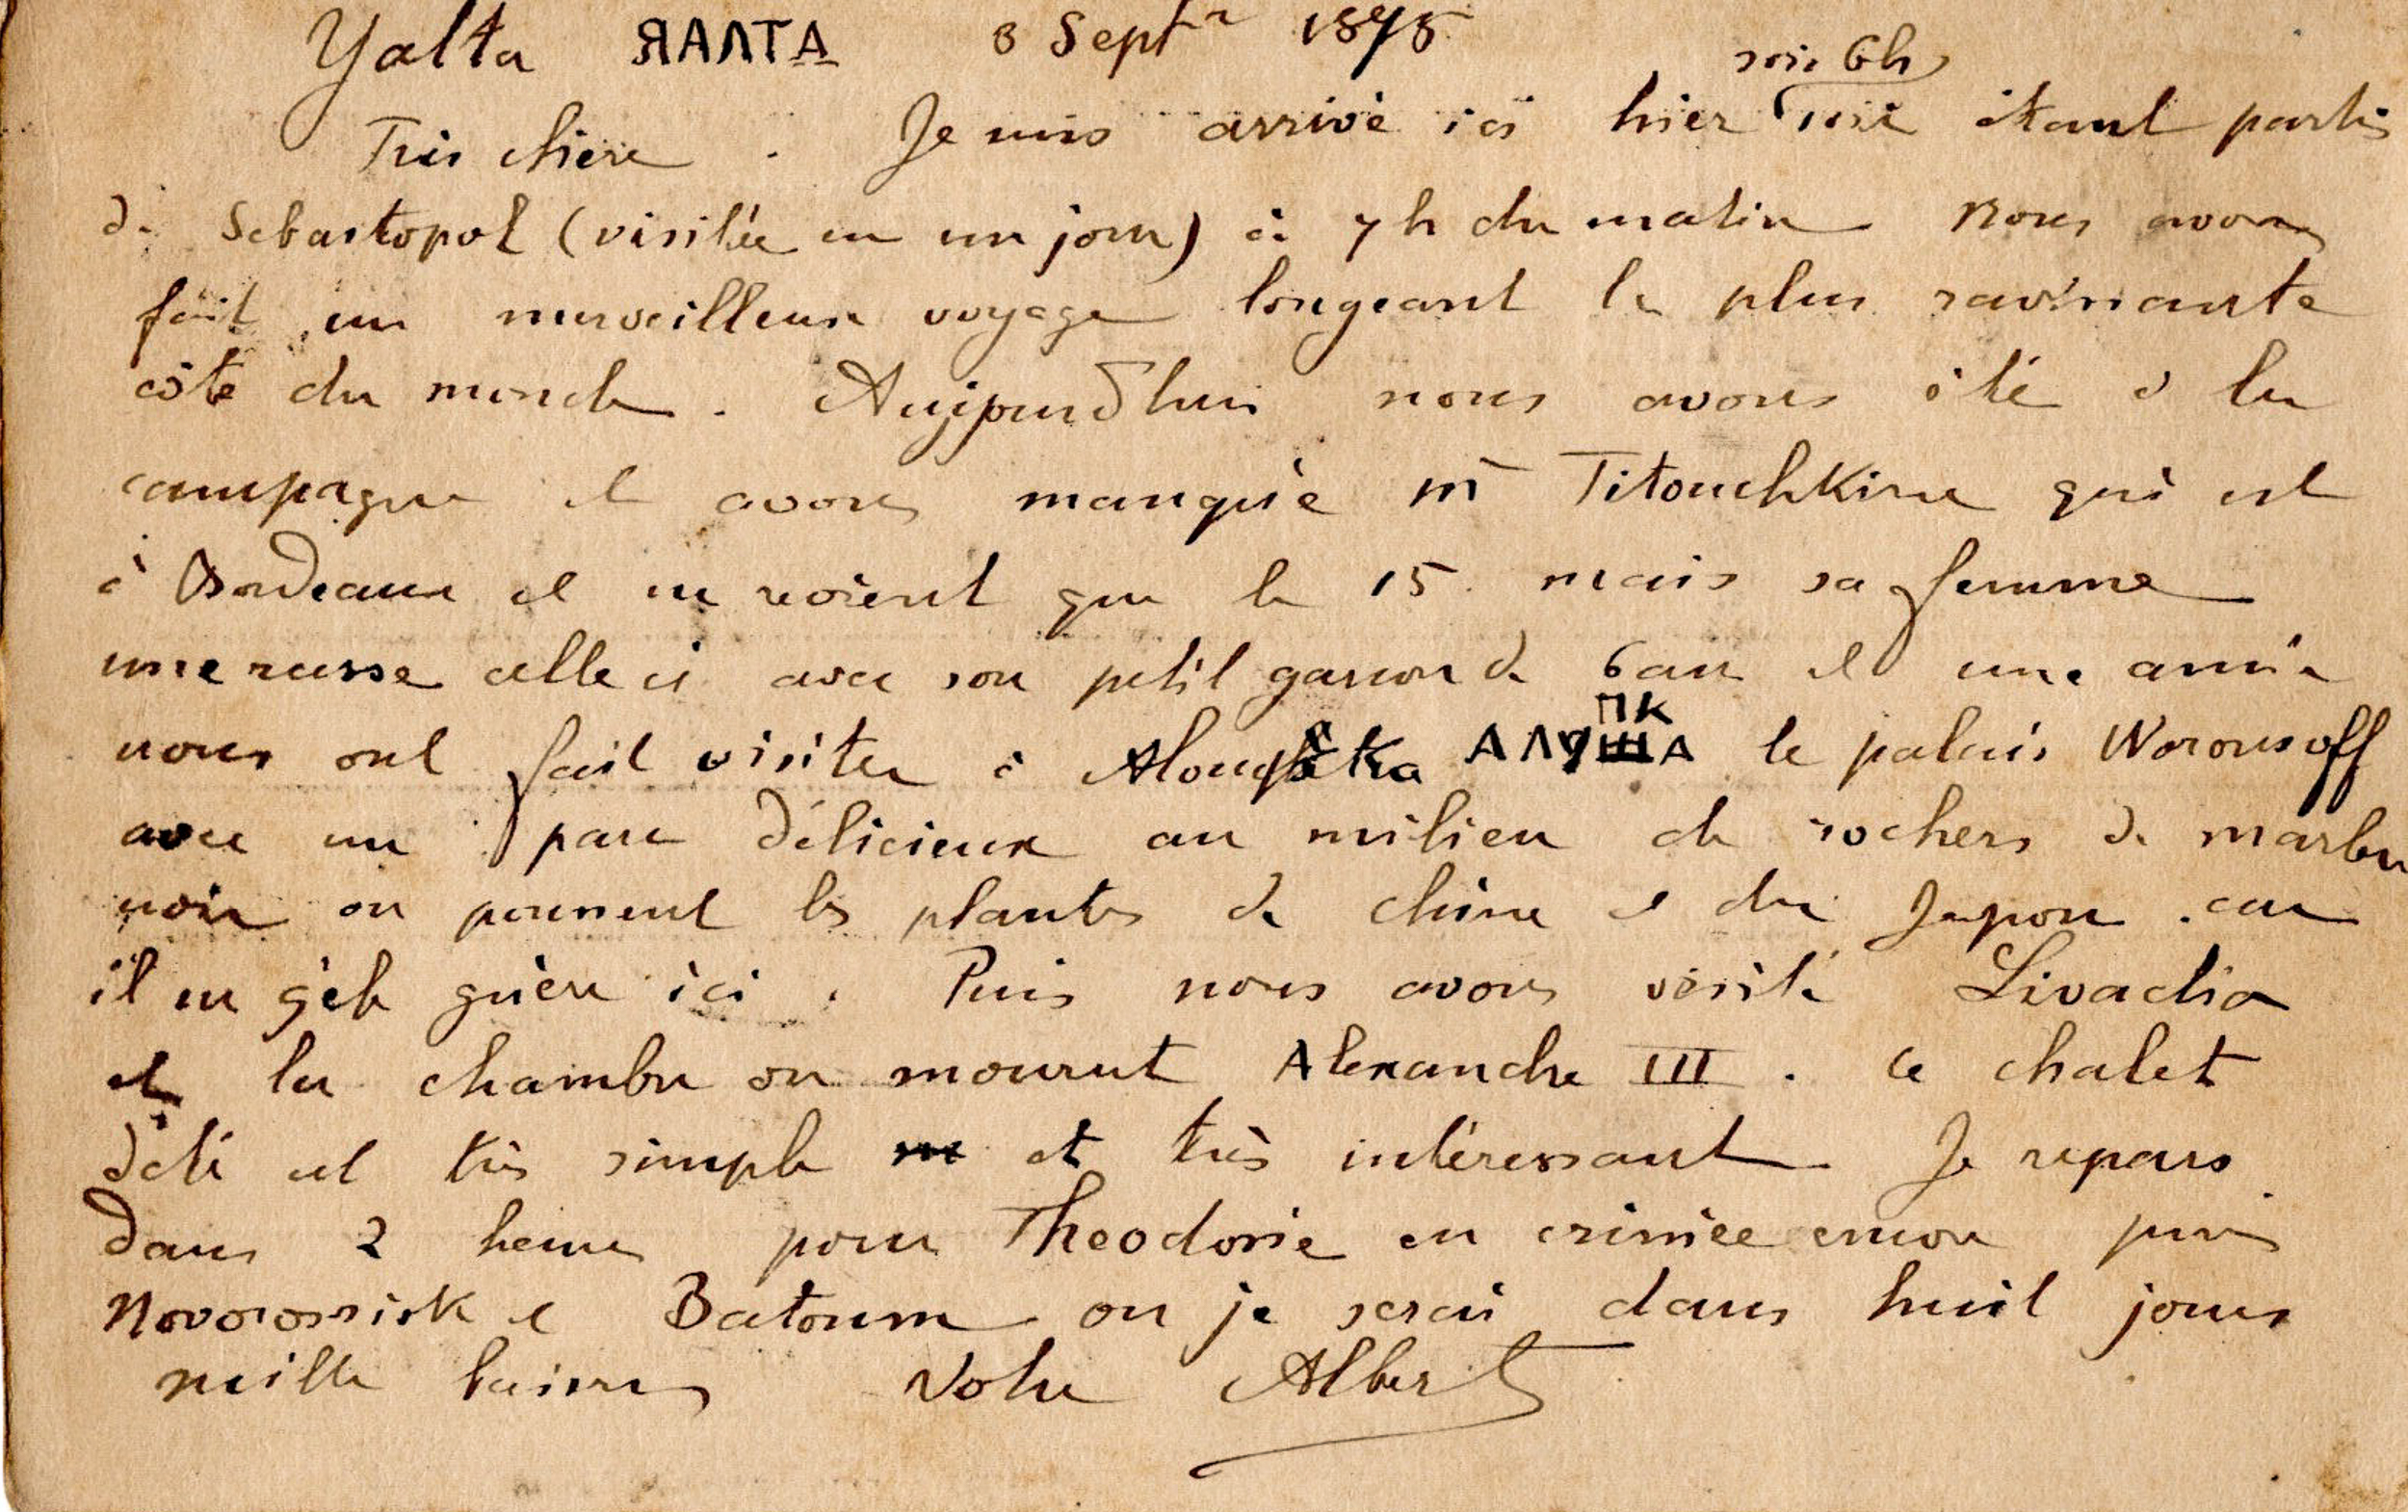 Yalta ЯАЛТА 8 Septr 1898
soir 6h
Très chère. Je suis arrivé ici hier étant partis
de Sebastopol (visitée en un jour) à 7h du matin. Nous avons
fait un merveilleux voyage longeant la plus ravissante
côte du monde. Aujourd'hui nous avons été à la
campagne et avons manqué Mr Titouchkine qui est
à Bordeaux et ne revient que le 15. mais sa femme
une russe celle ci avec son petit garcon de 6 ans et une amie
ПК
nous ont fait visiter à Aloupka АЛУША le palais Woronsoff
avec un parc délicieux au milieu de rochers de marbre
noir ou poussent les plantes de chine et du Japon. car
il ne gèle guère ici. Puis nous avons visité Livadia
et la chambre ou mourut Alexandre III. ce chalet
d'été est très simple et très intéressant. Je repars
dans 2 heures pour Theodosie en crimée encore puis
Novorossisk et Batoum ou je serai dans huit jours
mille baisers Votre Albert